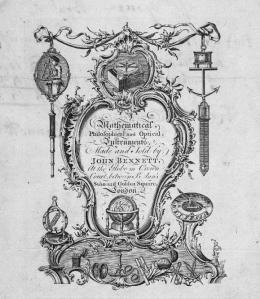 Mathematical,
Philosophical and Optical
Instruments,
Made and Sold by
JOHN BENNETT,
At the Globe in Crown
Court, between St. Ann's
Soho and Golden Square,
London.